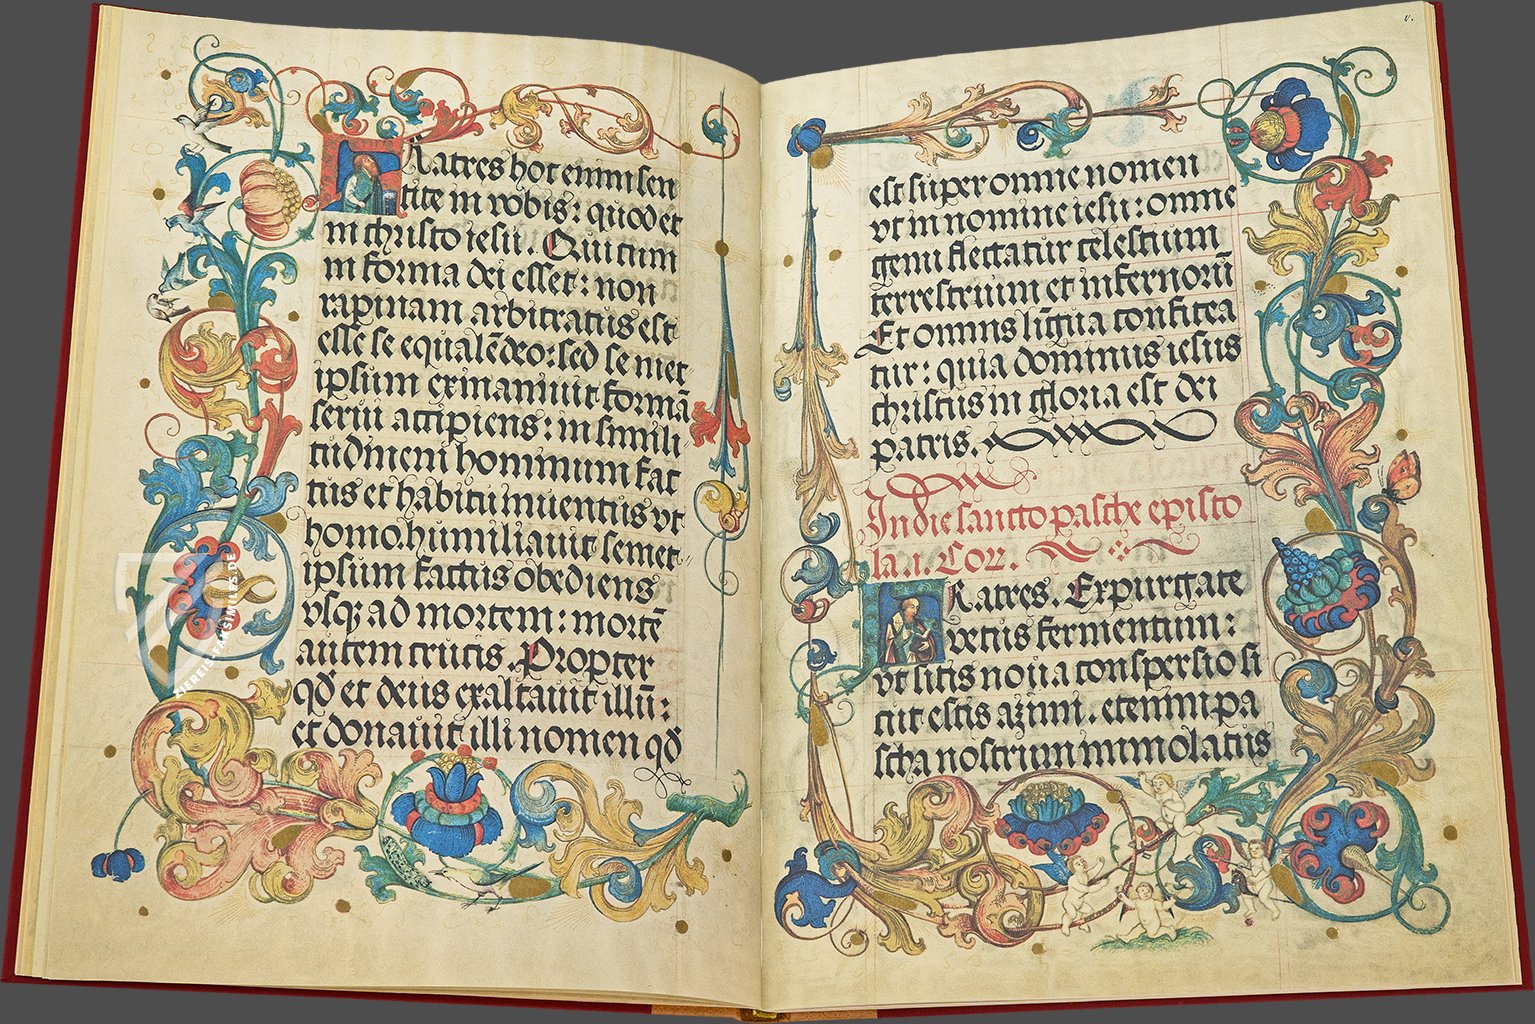 Fratres hoc enim sen
tite in vobis: quod et
in christo iesu. Qui cum
in forma dei esset: non
rapinam arbitratus est
esse se equalē deo: sed se met
ipsum exinanivit formā
servi accipiens: in simili
tudinem hominum fac
tus et habitu inventus vt
homo. humiliavit semet
ipsum factus obediens
vsq; ad mortem: mortē
autem crucis. Propter
qđ et deus exaltavit illū:
et donavit illi nomen qđ
v.
est super omne nomen
vt in nomine iesu: omne
genu flectatur celestium
terrestrium et infernorū
Et omnis līgua confitea
tur: quia dominus iesus
christus in gloria est dei
patris.
In die sancto pasche episto
la .i. Cor.
Fratres. Expurgate
vetus fermentum:
vt sitis nova conspersio si
cut estis azimi. etenim pa
scha nostrum immolatus
ZIEREIS-FAKSIMILES.DE